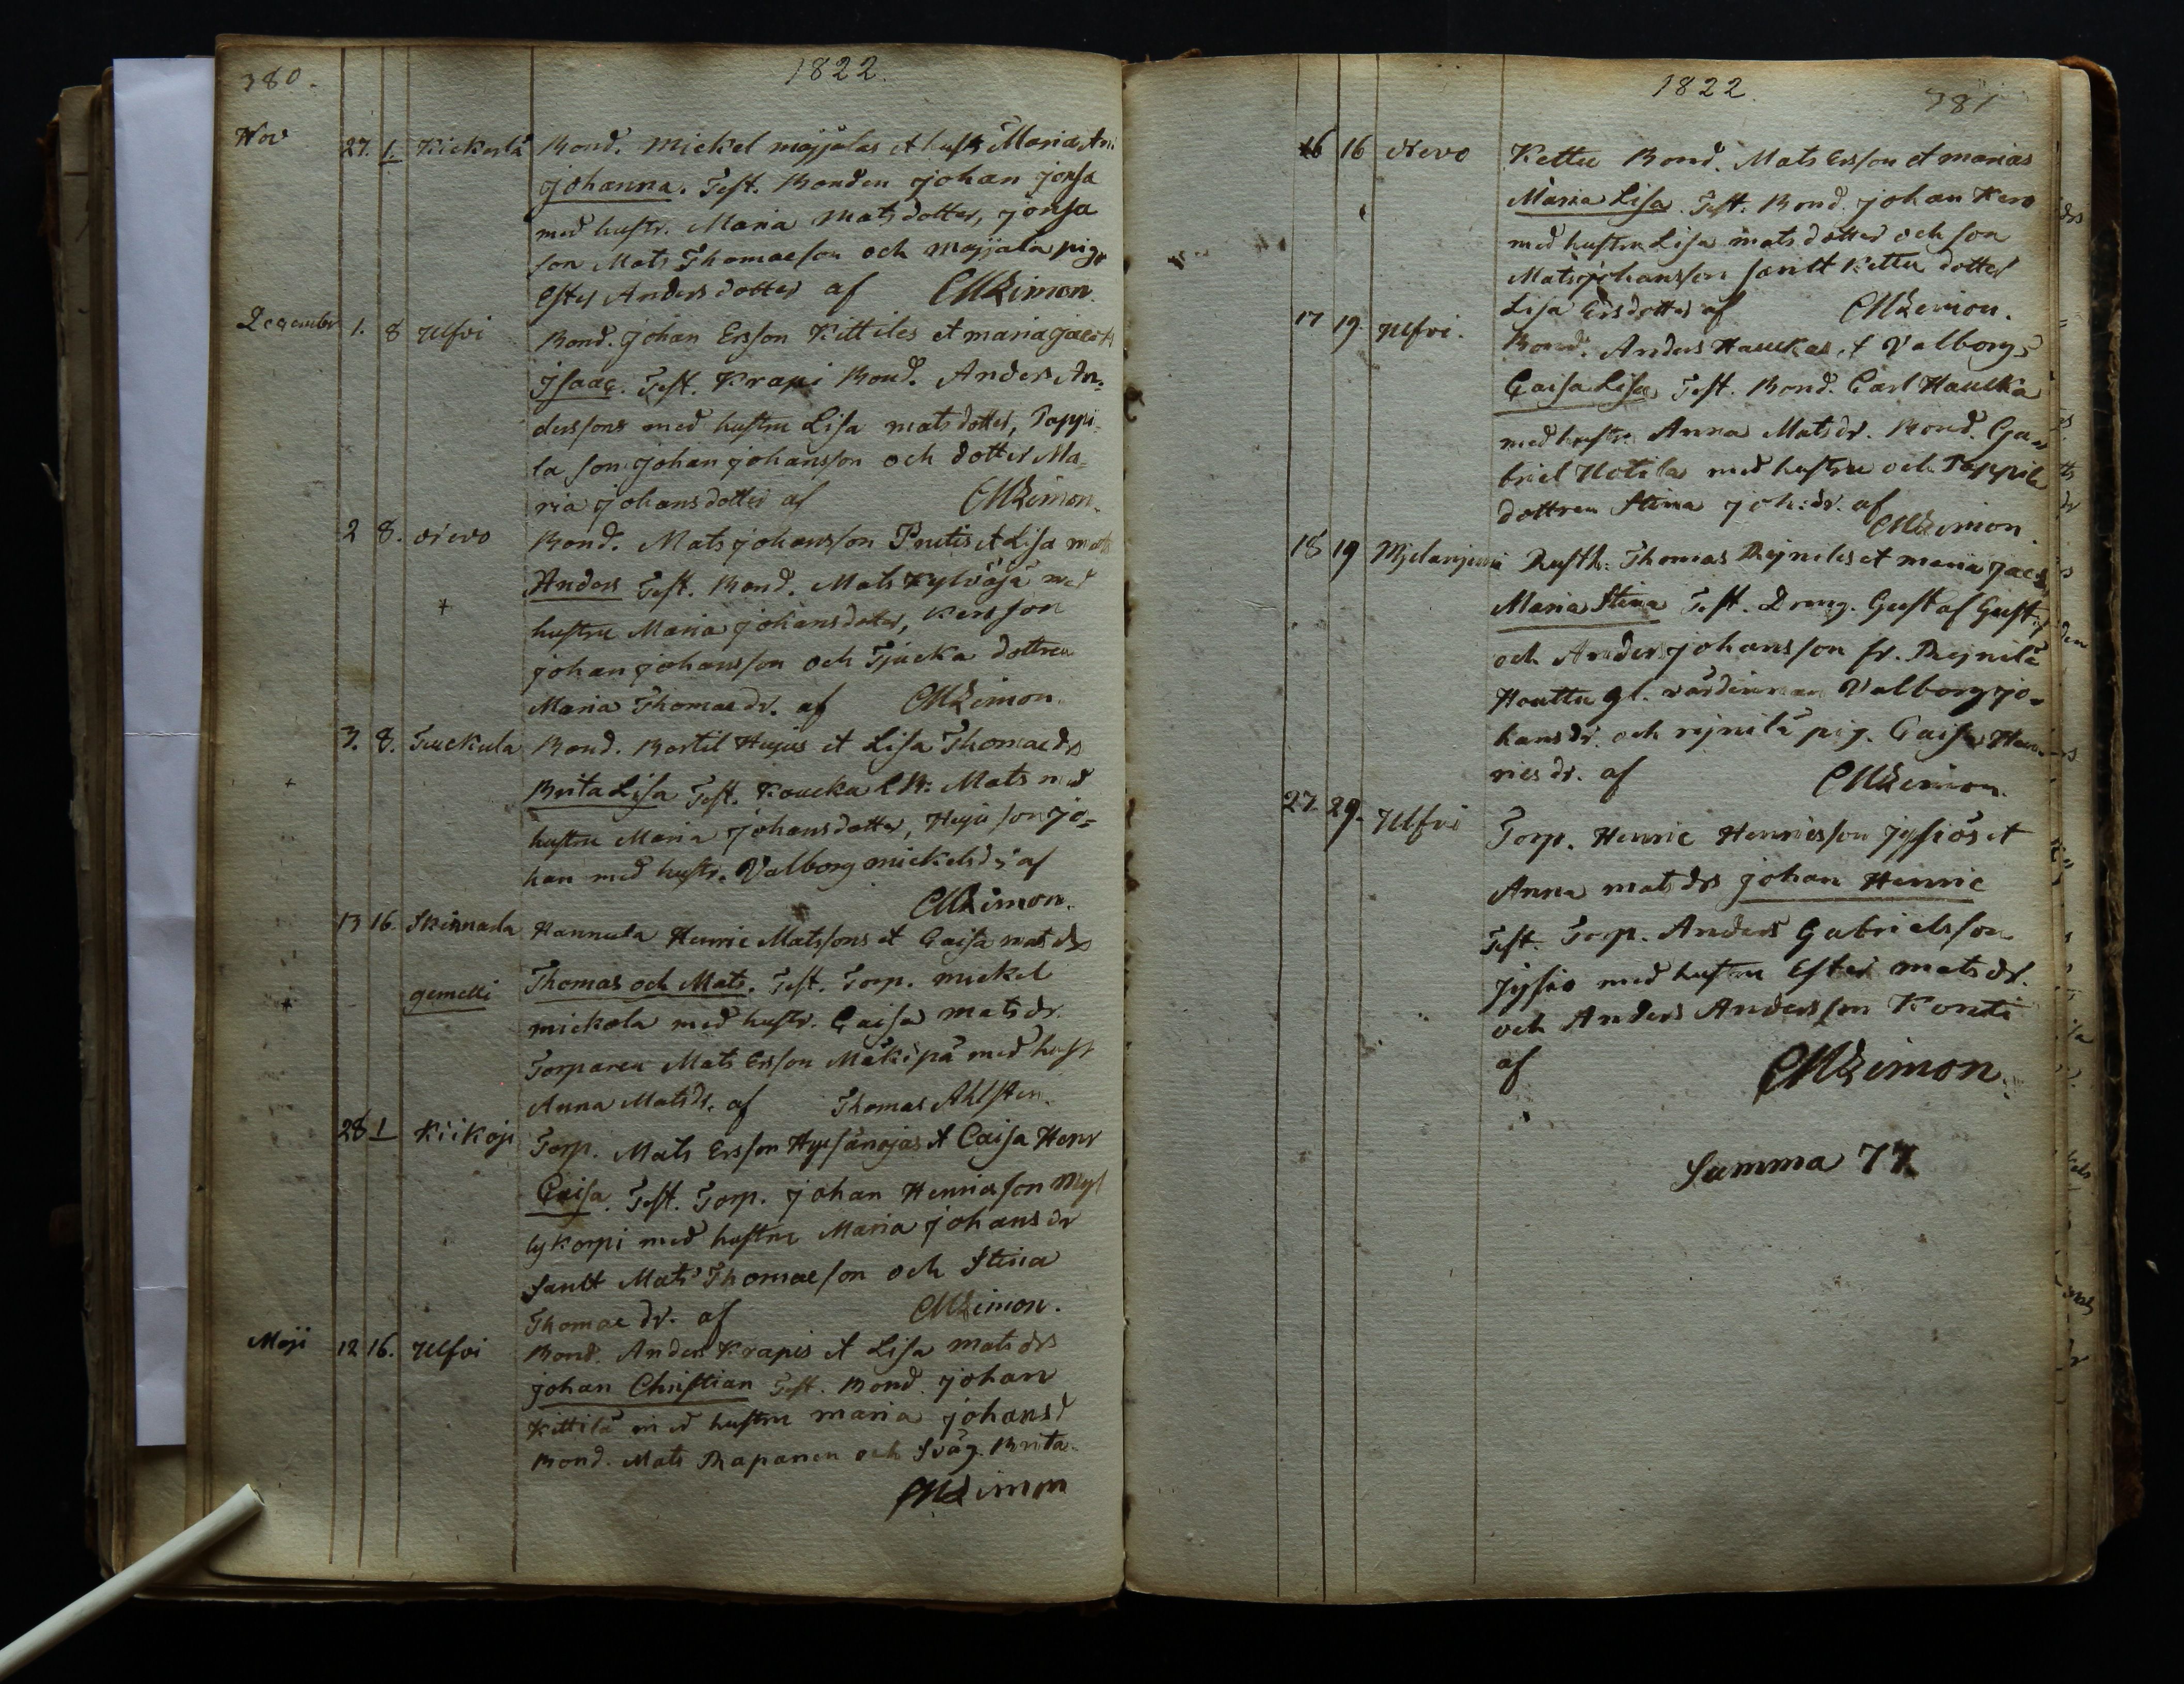 380.
1822.
Nov 27. 1. Kickerlä Bond. Mickel majjalas et hustr Maria An
Johanna. Test. Bonden Johan Jonsa
med hustr. Maria Matsdotter, Jonsa
son Mats Thomaeson och Majjala pig
Ester Andersdotter af CMLimon.
December 1. 8 Ulfvi Bond. Johan Ersson Kittiles et maria Jacobs
Isaac. Test. Krapi Bond. Anders An-
derssons med hustru Lisa matsdotter, Pappi-
la son Johan Johansson och dotter Ma-
ria Johansdotter af CMLimon.
2 8. Nevo Bond. Mats Johansson Prutis et Lisa mats
+ Anders Test. Bond. Mats Kylväjä med
hustru Maria Johansdotter, Kers son
Johan Johansson och Tjucka dottren
Maria Thomaedr. af CMLimon.
3. 8. Tuckula Bond. Bertil Hujus et Lisa Thomaedr
+ Brita Lisa Test. Koucka Mats med
hustru Maria Johansdotter, Huju son Jo=
han med hustr. Valborg mickelsdr af
CMLimon.
13 16. Skinnarla Hannula Henric Matssons et Caisa matsdr
+ gemelli Thomas och Mats. Test. Torp. mickel
mickola med hustr. Caisa matsdr.
Torparen Mats Ersson Mäkipä med hust
Anna Matsdr. af Thomas Ahlsten.
28 1 Kiikoji Torp. Mats Ersson Hyssänojas et Caisa Henr
Caisa. Test. Torp. Johan Henricsson Myl
lykorpi med hustru Maria Johansdr
samt Mats Thomaeson och Stina
Thomaedr. af CMLimon.
Maji 12 16. Ulfvi Bond. Anders Krapis et Lisa matsdr
Johan Christian Test. Bond. Johan
Kittilä med hustru maria Johansd
Bond. Mats Rapanen och Svåg. Brita
CMLimon
1822.
381
16 16 Nevo Kettu Bond. Mats Ersson et marias
Maria Lisa. Test. Bond. Johan Kero
med hustru Lisa matsdotter och son
Mats Johansson samt Kettu dotter
Lisa Ersdotter af CMLimon.
17 19. Ulfvi. Bond. Anders Hauckas et Valborgs
Caisa Lisa Test. Bond. Carl Haucka
med hustr. Anna Matsdr. Bond. Ga-
briel Hotila med hustru och Pappila
dottren Stina Joh:dr. af CMLimon.
18 19 Mjelanjemi Rusth. Thomas Rejniles et maria Jacobs
Maria Stina Test. Dreng. Gustaf Gust
och Anders Johansson fr. Rejnilä
Houttu gl. värdinnan Valborg Jo-
hansdr. och rejnilä pig. Caisa Hen-
ricsdr. af CMLimon.
27. 29. Ulfvi Torp. Henric Henricsson Jyssiös et
Anna matsdr Johan Henric
Test. Torp. Anders Gabrielsson
Jyssiö med hustru Ester matsdr.
och Anders Andersson Konti
af CMLimon.
Summa 77